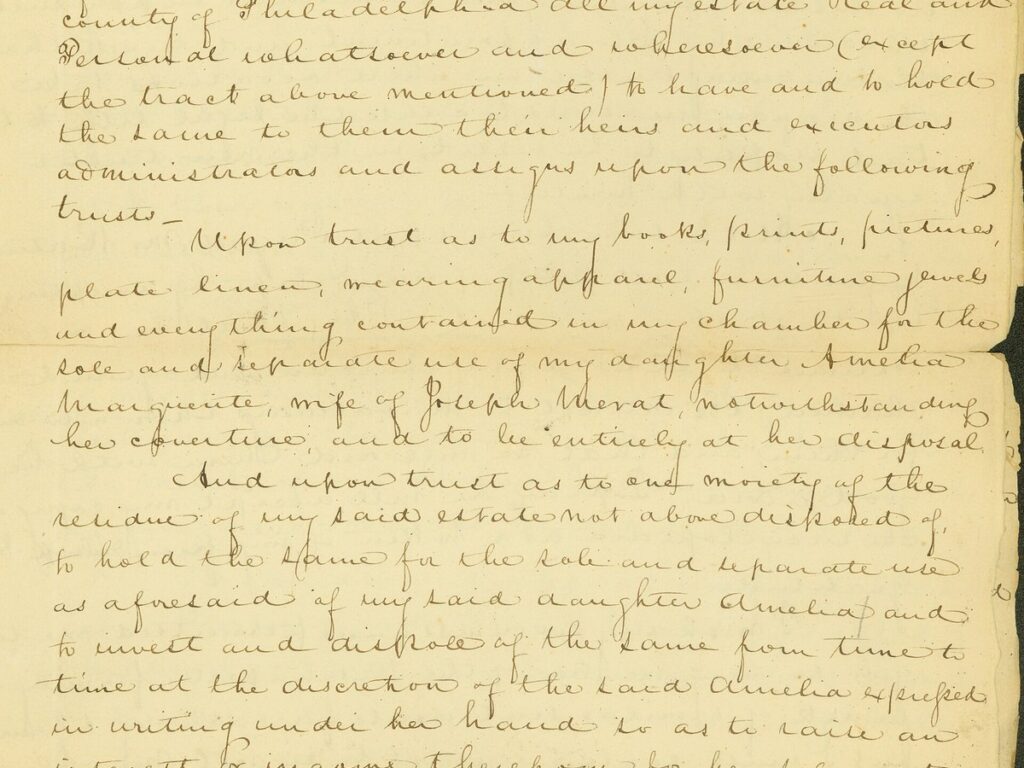 county of Philadelphia all my estate Real and
Personal whatsoever and wheresoever (except
the tract above mentioned) to have and to hold
the same to them their heirs and executors
administrators and assigns upon the following
trusts_
Upon trust as to my books, prints, pictures,
plate linen, wearing apparel, furniture jewels
and everything contained in my chamber for the
sole and separate use of my daughter Amelia
Marguerite, wife of Joseph Merat, notwithstanding
her coverture, and to be entirely at her disposal
And upon trust as to one moiety of the
residue of my said estate not above disposed of,
to hold the same for the sole and separate use
as aforesaid of my said daughter Amelia and
to invest and dispose of the same from time to
time at the discretion of the said Amelia expressed
in writing under her hand so as to raise an
interest or income therefrom for her